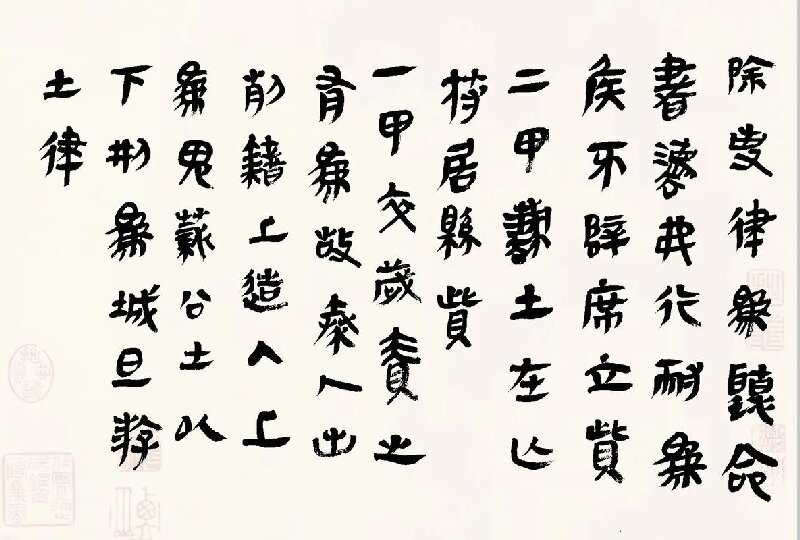 除吏律為聽命
書灋弗行耐為
侯不辟席立貲
二甲士在亡
符居縣貲
一甲卒歲責之
有為故秦人出
削籍上造人上
為鬼薪公士以
下刑為城旦游
士律